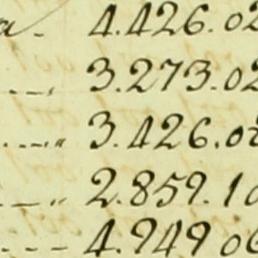 a. 4.426.02
3.273.02
3.426.08
2.859.10
4.949 06